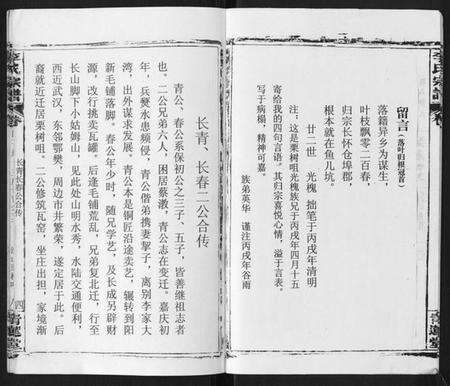 留言（落叶归根冠首）
落籍异乡为谋生，
叶枝飘零二百春，
归宗长怀仓埠郡，
根本就在鱼儿坑。
廿二世 光槐 拙笔于丙戌年清明
注，这是栗树咀光槐族兄于丙戌年四月十五
寄给我的四句言语。其归宗喜悦心情，溢于言表。
写于病榻，精神可嘉。
族弟英华 谨注丙戌年谷雨
长青、长春二公合传
青公、春公系保初公之三子、五子，皆善继祖志者
也。二公兄弟六人，困居蔡漖，青公志在变迁。嘉庆初
年，兵燹水患频侵，青公偕弟携妻挈子，离别李家大
湾，出外谋求发展。青公本是铜匠沿途卖艺，辗转到阳
新毛铺落脚。春公年少时，随兄学艺，及长成另辟财
源，改行挑卖瓦罐。后逢毛铺荒乱，兄弟复北迁，行至
长山脚下小姑姆山，见此处山明水秀，水陆交通便利，
西近武汉，东邻鄂樊，周边市井繁荣，遂定居于此。后
裔就近迁居栗树咀。二公修筑瓦窑，坐庄出担，家境渐
长青长春公合传
四
青莲堂